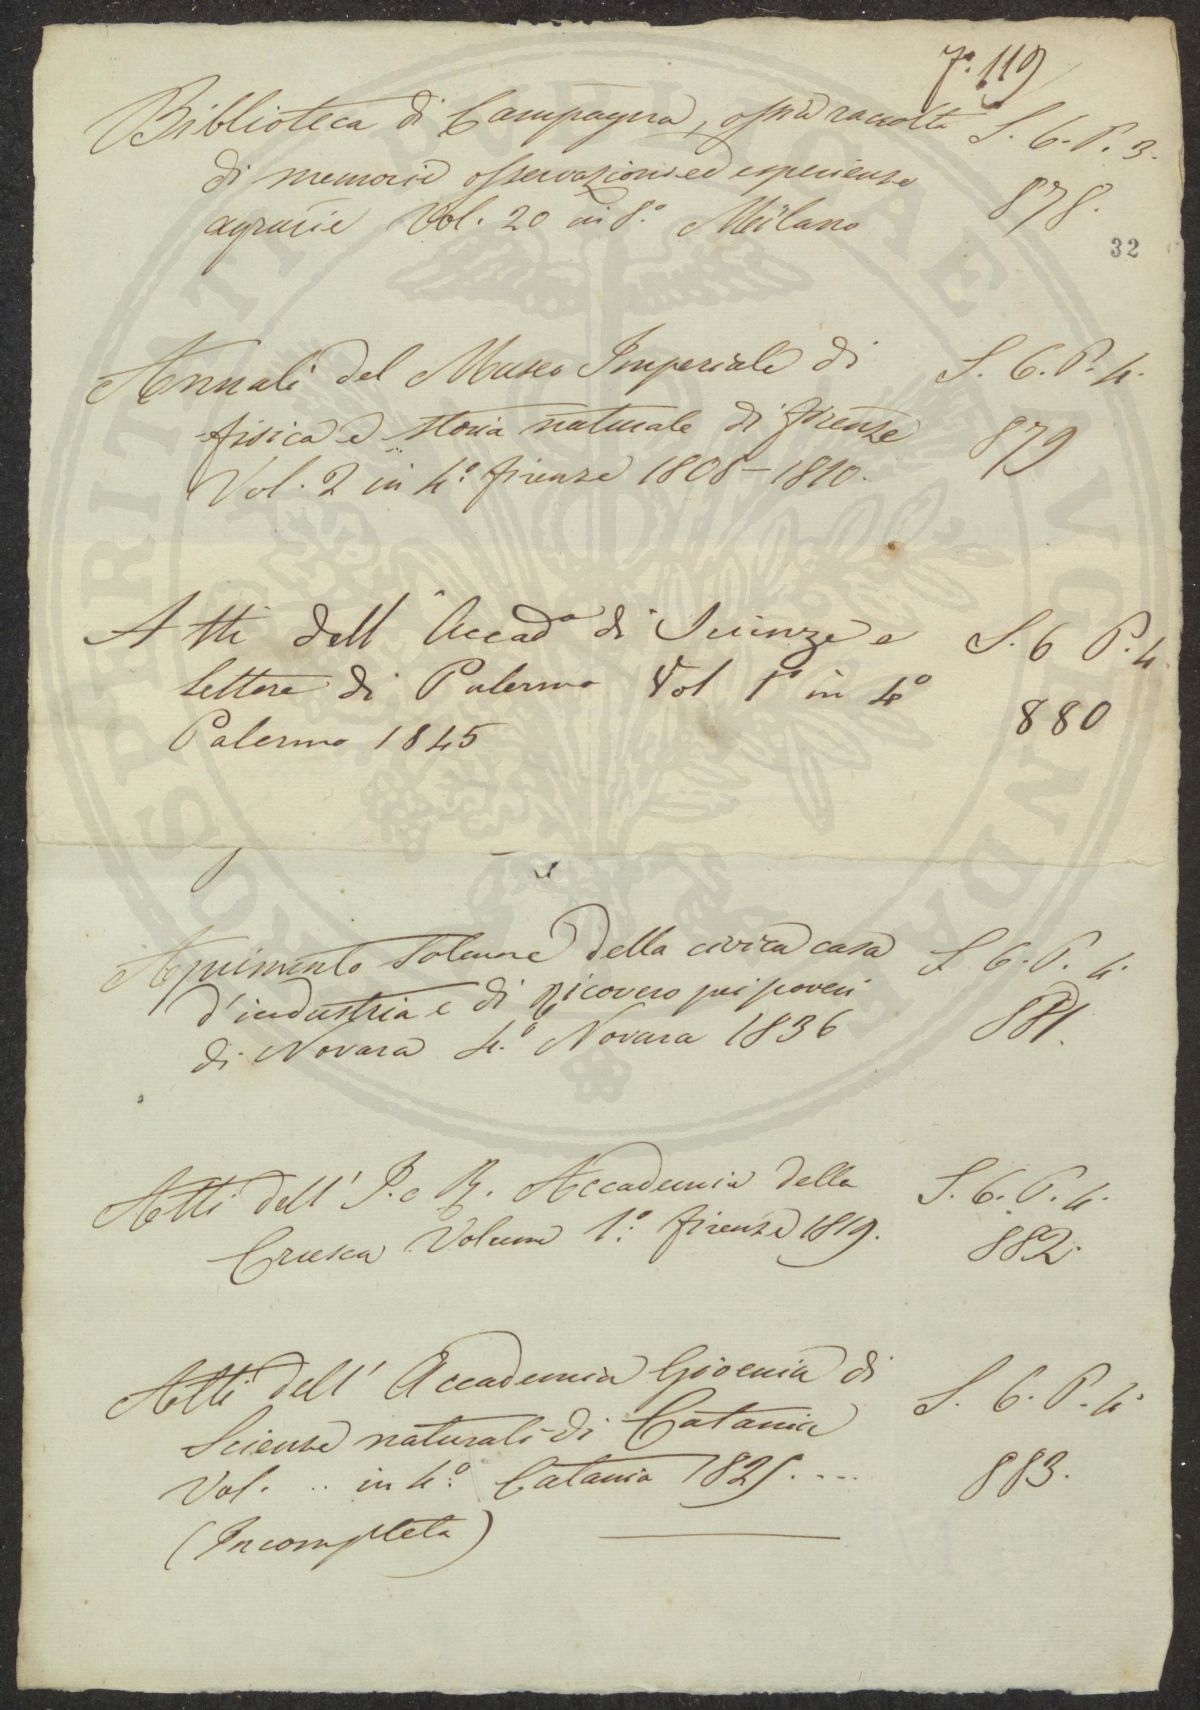 7°. 119
Biblioteca di Campagna, ossia raccolta S. 6. P. 3.
di memorie osservazioni ed esperienze
agrarie Vol. 20 in 8.° Milano 878.
32
Annali del Museo Imperiale di S. 6. P. 4.
fisica e storia naturale di firenze 879
Vol. 2 in 4.° firenze 1808-1810.
Atti dell' Accad.a di Scienze e S. 6 P. 4.
lettere di Palermo Vol 1° in 4°
Palermo 1845 880
Aprimento solenne della civica casa S. 6. P. 4.
d'industria e di Ricovero pei poveri
di Novara 4.° Novara 1836 881.
Atti dell' I. e R. Accademia della S. 6. P. 4.
Crusca Volume 1.° firenze 1819. 882.
Atti dell' Accademia Gioenia di S. 6. P. 4.
Scienze naturali di Catania
Vol. .. in 4.° Catania 1825. ... 883.
(Incompleta)